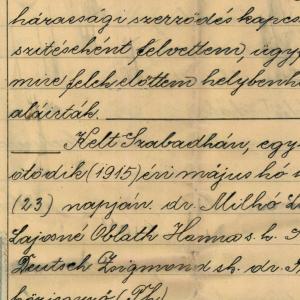 házassági szerződés kapcs
szitéseként felvettem, úgy
mire felek előttem helybenh
aláirták.
Kelt Szabadkán, egy
ötödik (1915) évi május hó
(23) napján. dr. Milkó L
Lajosné Oblath Hanna s. k.
Deutsch Zsigmond sk. dr.
közjegyző (P.H.)